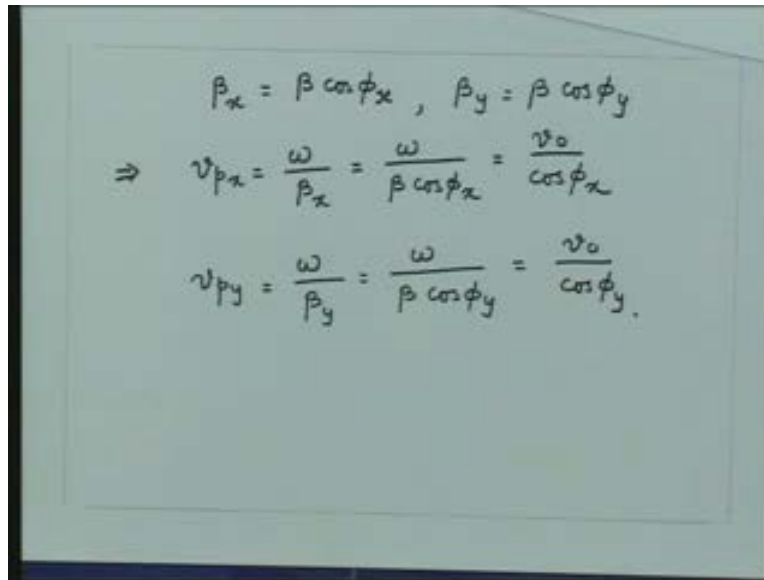 βₓ = β cos ϕₓ , β_y = β cos ϕ_y
⇒ v_px = ω/βₓ = ω/(β cos ϕₓ) = v₀/cos ϕₓ
v_py = ω/β_y = ω/(β cos ϕ_y) = v₀/cos ϕ_y.